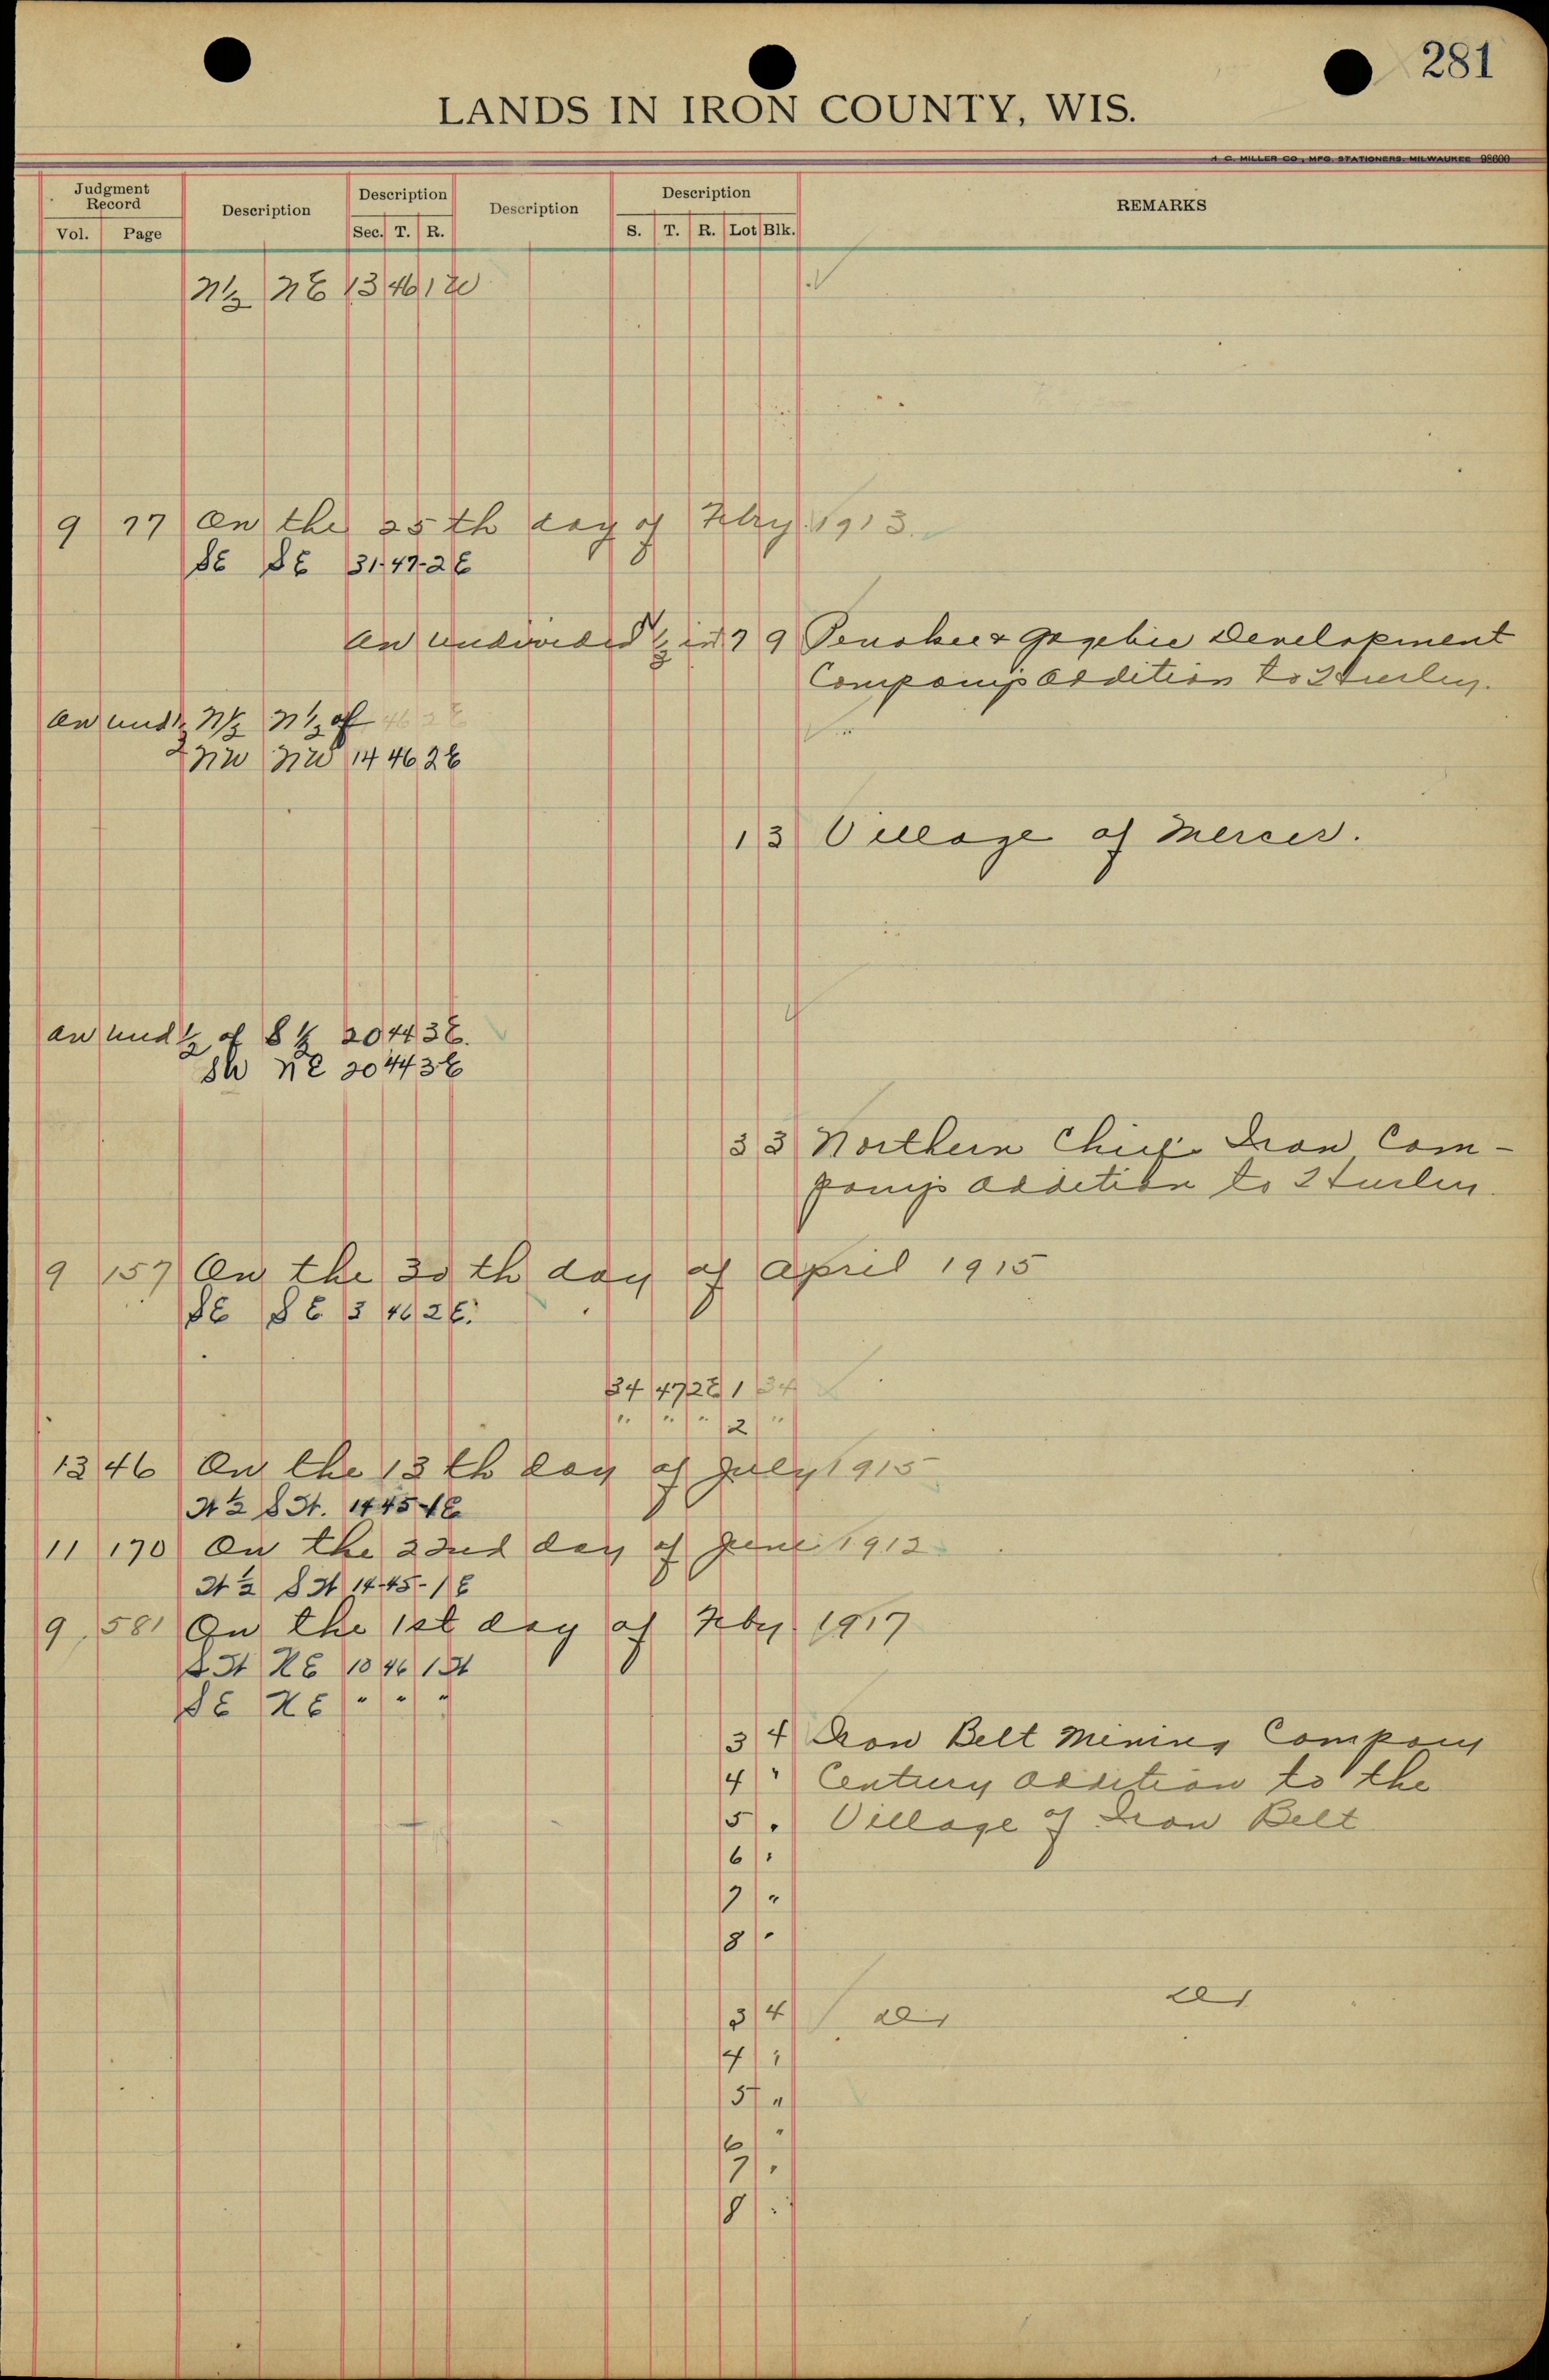 281
LANDS IN IRON COUNTY, WIS.
H. C. MILLER CO., MFG. STATIONERS, MILWAUKEE 98600
Judgment Record Description Description Description Description REMARKS
Vol. Page Sec. T. R. S. T. R. Lot Blk.
N½ NE 13 46 1 W
9 77 On the 25th day of Feby 1913.
SE SE 31-47-2E
An undivided ½ in 7 9 Penokee & Gogebic Development
Company's Addition to Hurley.
An und ½ N½ N½ of 46 2 E
NW NW 14 46 2E
1 3 Village of Mercer.
An und ½ of S½ 20 44 3E.
SW NE 20 44 3E
3 3 Northern Chief Iron Com-
pany's Addition to Hurley
9 157 On the 30th day of April 1915
SE SE 3 46 2E.
34 47 2E 1 34
" " " 2 "
13 46 On the 13th day of July 1915
W½ SW. 14 45-1E
11 170 On the 22nd day of June 1912
W½ SW 14-45-1E
9 581 On the 1st day of Feby. 1917
SW NE 10 46 1W
SE NE " " "
3 4 Iron Belt Mining Company
4 " Century Addition to the
5 " Village of Iron Belt
6 "
7 "
8 "
3 4 do do
4 "
5 "
6 "
7 "
8 "